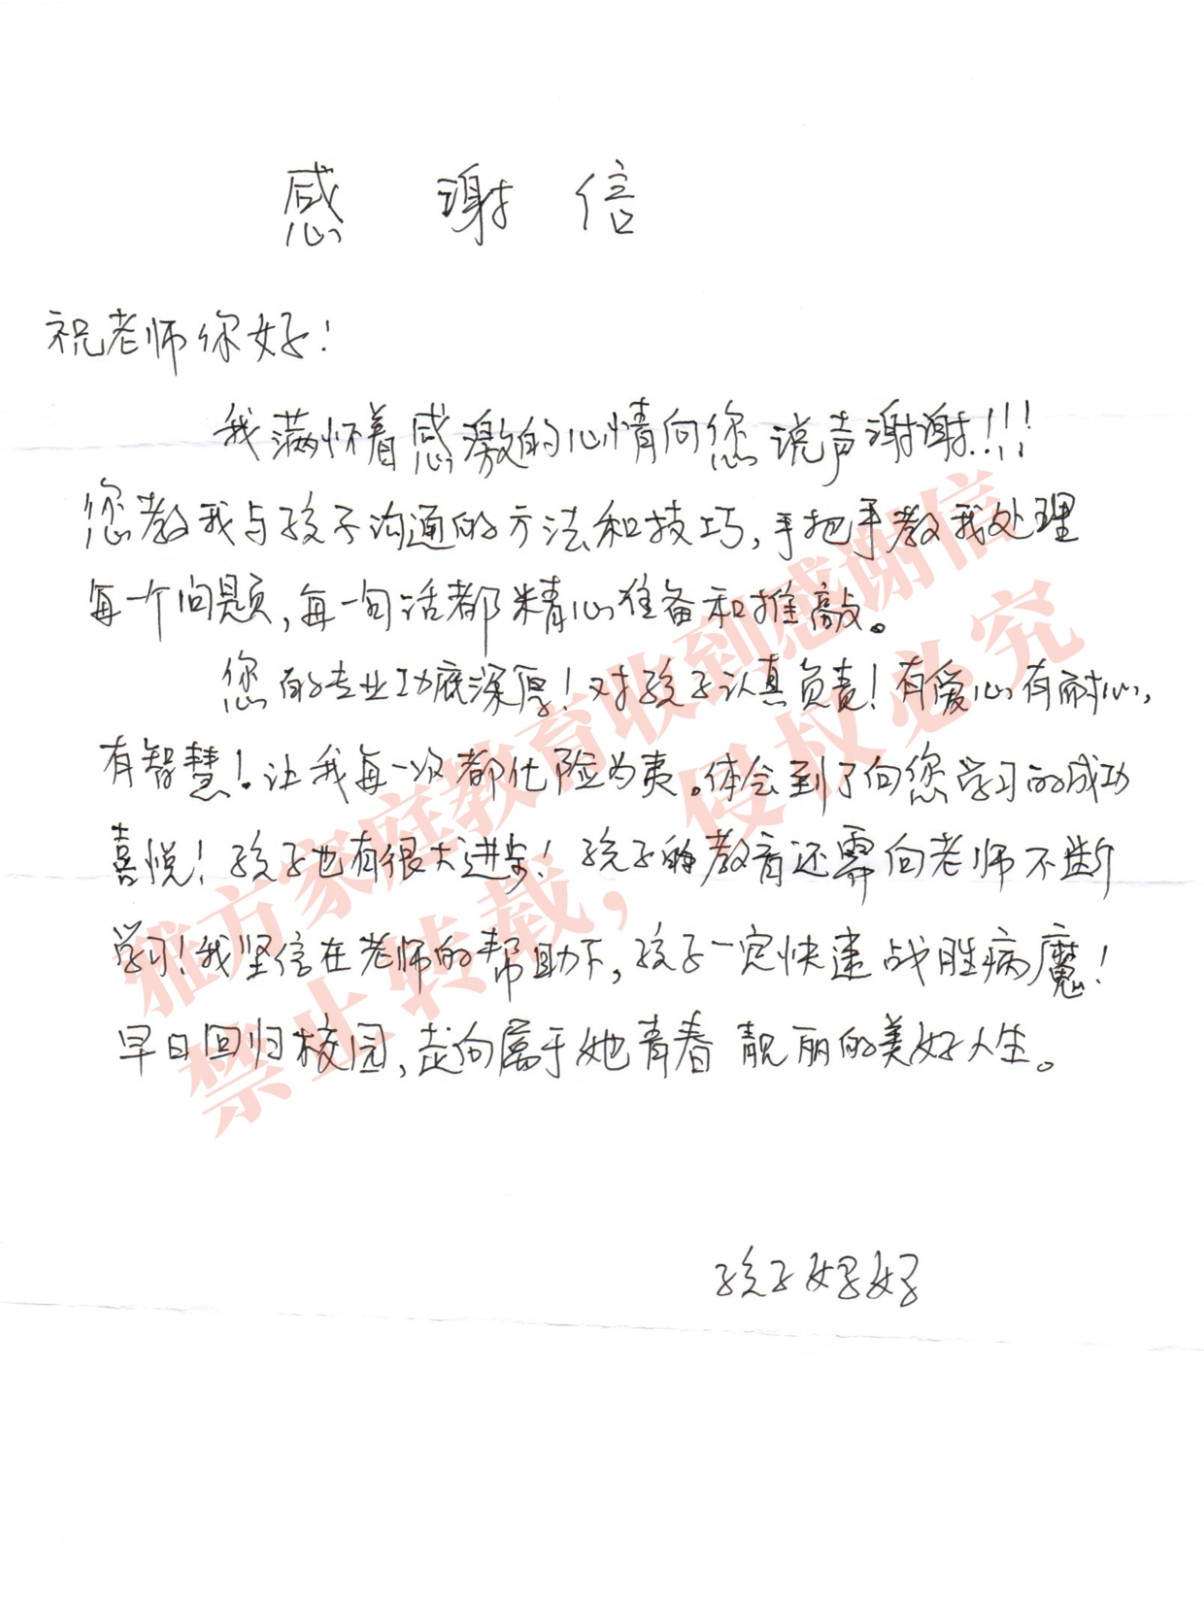 感谢信
祝老师你好！
我满怀着感激的心情向您说声谢谢！！！
您教我与孩子沟通的方法和技巧，手把手教我处理
每一个问题，每一句话都精心准备和推敲。
您的专业功底深厚！对孩子认真负责！有爱心有耐心，
有智慧！让我每一次都化险为夷。体会到了向您学习的成功
喜悦！孩子也有很大进步！孩子的教育还需向老师不断
学习！我坚信在老师的帮助下，孩子一定快速战胜病魔！
早日回归校园，走向属于她青春靓丽的美好人生。
孩子妈好好
雅方家庭教育收到感谢信
禁止转载，侵权必究